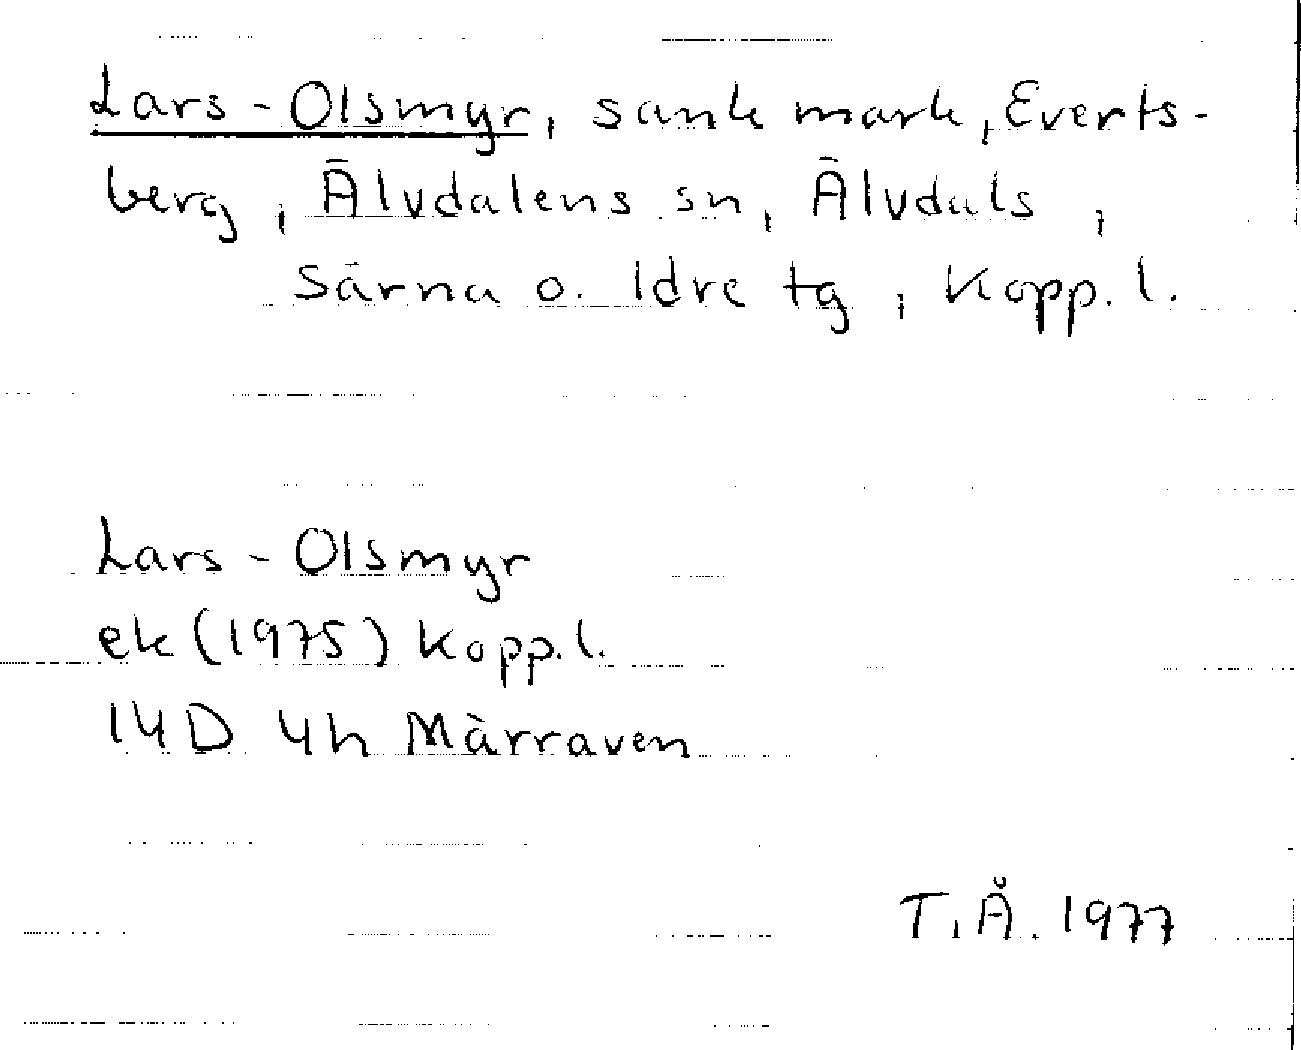 Lars-Olsmyr, sank mark, Everts-
berg, Älvdalens sn, Älvdals,
Särna o. Idre tg, Kopp. l.
Lars-Olsmyr
ek (1975) Kopp. l.
14D 4h Märraven
T.Å. 1977